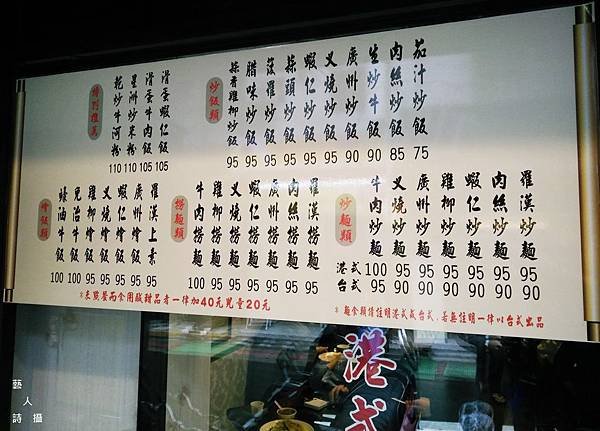 特別推薦
乾炒牛河粉 110
星洲炒米粉 110
滑蛋牛肉飯 105
滑蛋蝦仁飯 105
炒飯類
蒜香雞柳炒飯 95
臘味炒飯 95
菠蘿炒飯 95
蒜頭炒飯 95
蝦仁炒飯 95
叉燒炒飯 95
廣州炒飯 90
生炒牛飯 90
肉絲炒飯 85
茄汁炒飯 75
燴飯類
蠔油牛飯 100
免治牛飯 100
雞柳燴飯 95
叉燒燴飯 95
蝦仁燴飯 95
廣州燴飯 95
羅漢上素 95
撈麵類
牛肉撈麵 100
叉燒撈麵 95
蝦仁撈麵 95
廣州撈麵 95
肉絲撈麵 95
羅漢撈麵 90
炒麵類
牛肉炒麵 叉燒炒麵 廣州炒麵 雞柳炒麵 蝦仁炒麵 肉絲炒麵 羅漢炒麵
港式 100 95 95 95 95 95 95
台式 95 90 90 90 90 90 90
※未點餐而食用鹹甜品者一律加40元兒童20元
※麵食類請註明港式或台式.若無註明一律以台式出品
港式
藝人詩攝